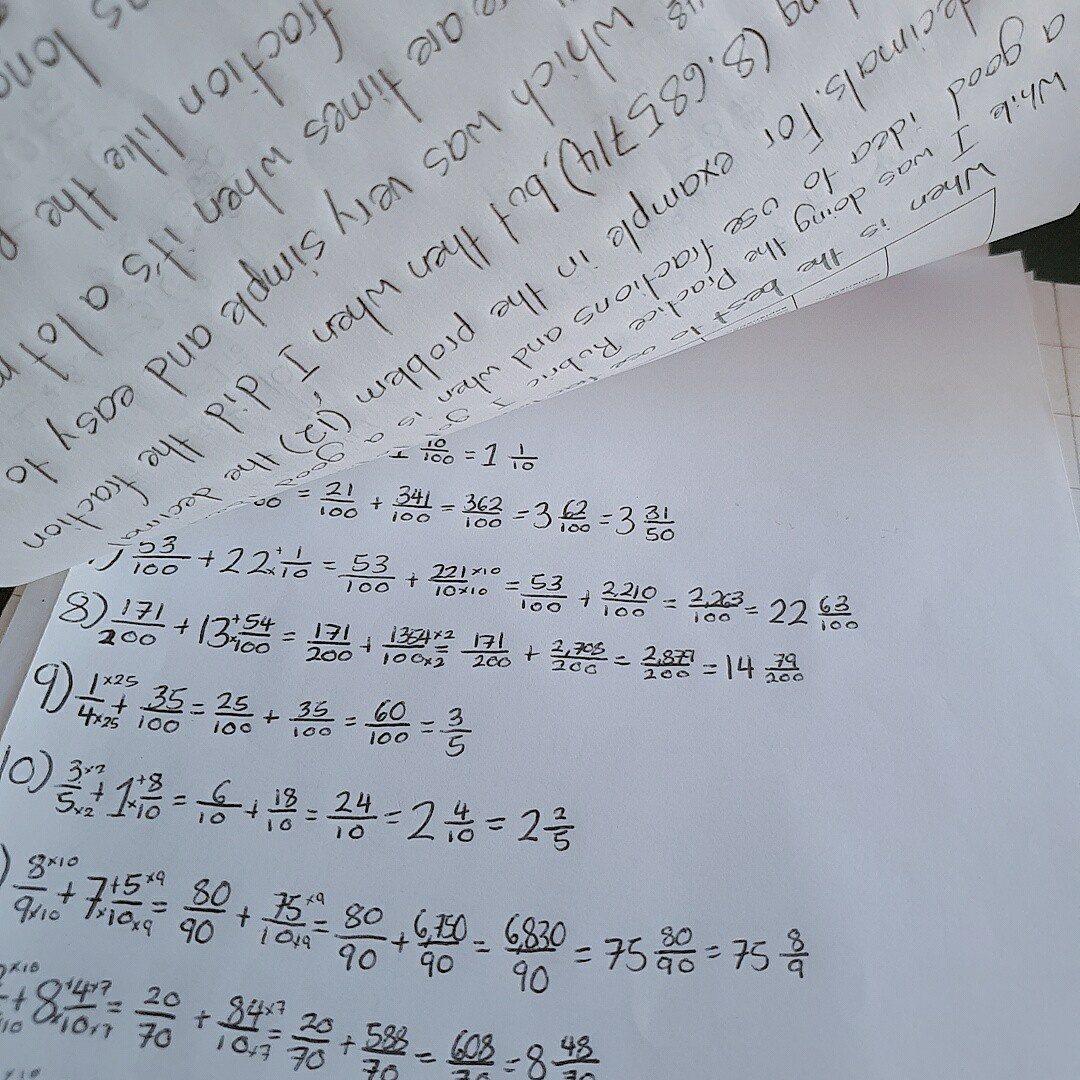 When is the best to use
While I was doing the Practice Rubric
a good idea to use fractions and when is a good
decimals. For example in the problem (12) the decima
(8.685714), but then when I did the fraction
which was very simple and easy to
are times when it's a lot
fraction like the
long
10/100 = 1 1/10
= 21/100 + 341/100 = 362/100 = 3 62/100 = 3 31/50
) 53/100 + 22 + 1/× 10 = 53/100 + 221 ×10/10 ×10 = 53/100 + 2,210/100 = 2,263/100 = 22 63/100
8) 171/200 + 13 + 54/× 100 = 171/200 + 1354 ×2/100 ×2 = 171/200 + 2,708/200 = 2,879/200 = 14 79/200
9) 1 ×25/4 ×25 + 35/100 = 25/100 + 35/100 = 60/100 = 3/5
10) 3 ×2/5 ×2 + 1 + 8/× 10 = 6/10 + 18/10 = 24/10 = 2 4/10 = 2 2/5
) 8 ×10/9 ×10 + 7 + 5 ×9/× 10 ×9 = 80/90 + 75 ×9/10 ×9 = 80/90 + 6,750/90 = 6,830/90 = 75 80/90 = 75 8/9
×10 + 8 + 4 ×7/× 10 ×7 = 20/70 + 84 ×7/10 ×7 = 20/70 + 588/70 = 608/70 = 8 48/70
×10